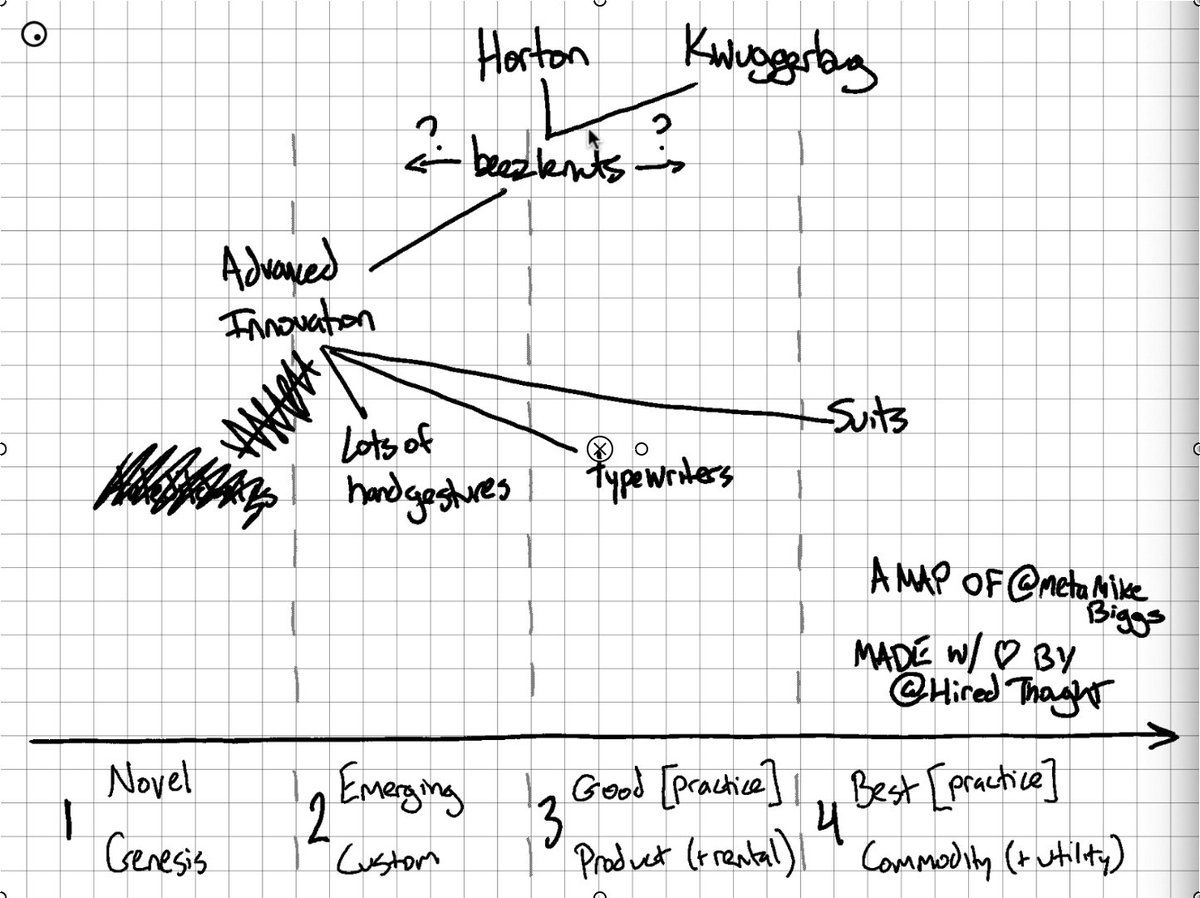 Horton
Kwuggerbug
?
?
beezlenuts
Advanced
Innovation
Suits
Lots of
hand gestures
typewriters
A MAP OF @metaMike
Biggs
MADE W/ ♡ BY
@Hired Thought
1
Novel
Genesis
2
Emerging
Custom
3
Good [practice]
Product (+rental)
4
Best [practice]
Commodity (+utility)